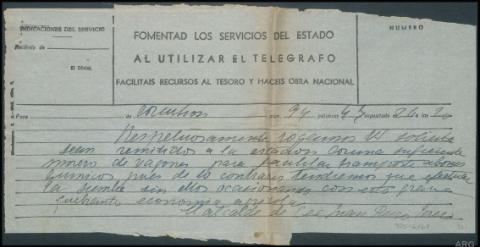 INDICACIONES DEL SERVICIO
FOMENTAD LOS SERVICIOS DEL ESTADO
NUMERO
Recibido de
AL UTILIZAR EL TELEGRAFO
El Oficial
FACILITAIS RECURSOS AL TESORO Y HACEIS OBRA NACIONAL
Para de num 94 palabras 43 depositado a las
Respetuosamente rogamos VI solicite
sean remitidos a la estacion Coruña suficiente
numero de vagones para facilitar transporte abonos
quimicos pues de lo contrario tendremos que efectuar
la siembra sin ellos ocasionando con esto grave
quebranto economia agricola
alcalde de Cee Juan
ARG